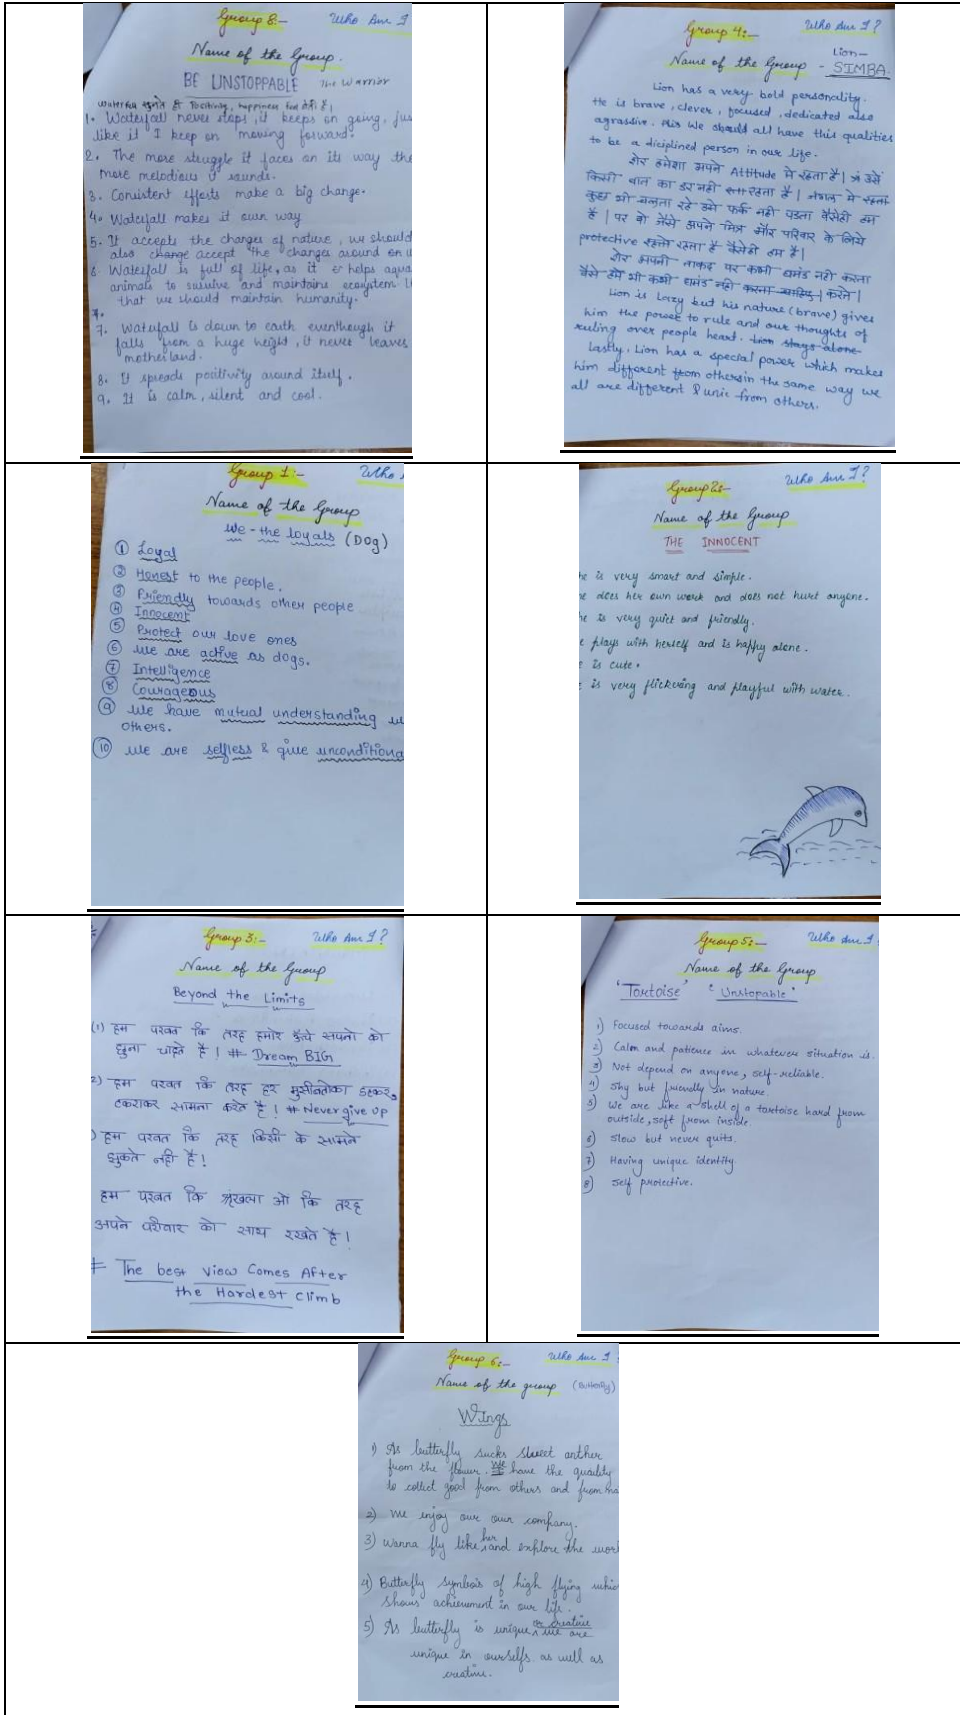 Group 8:- Who Am I
Name of the Group.
BE UNSTOPPABLE The Warrior
Waterfall सुनते ही Positivity, happiness
1. Waterfall never stops, it keeps on going, jus
like it I keep on moving forward.
2. The more struggle it faces on its way the
more melodious it sounds.
3. Consistent efforts make a big change.
4. Waterfall makes it own way
5. It accepts the changes of nature, we should
also change accept the changes around on u
6. Waterfall is full of life, as it helps aqua
animals to survive and maintains ecosystem
that we should maintain humanity.
7.
7. Waterfall is down to earth eventhough it
falls from a huge height, it never leaves
motherland.
8. It spreads positivity around itself.
9. It is calm, silent and cool.
Group 4:- Who Am I?
Lion-
Name of the Group - SIMBA
Lion has a very bold personality.
He is brave, clever, focused, dedicated also
agrassive. We should all have this qualities
to be a diciplined person in our life.
शेर हमेशा अपने Attitude मे रहता है। उसे
किसी बात का डर नही रहता है। जंगल मे
कुछ भी चलता रहे उसे फर्क नही पडता वैसेही हम
है। पर वो जैसे अपने मित्र और परिवार के लिये
protective रहता है वैसेही हम है।
शेर अपनी ताकद पर कभी घमंड नही करता
वैसे हम भी कभी घमंड नही करना चाहिए करेंगे।
Lion is Lazy but his nature (brave) gives
him the power to rule and our thoughts of
ruling over people heart. Lion stays alone
Lastly. Lion has a special power which makes
him different from others in the same way we
all are different & unic from others.
Group 1:- Who
Name of the Group
We - the loyals (Dog)
1 Loyal
2 Honest to the people.
3 Friendly towards other people
4 Innocent
5 Protect our love ones
6 We are active as dogs.
7 Intelligence
8 Courageous
9 We have mutual understanding w
others.
10 We are selfless & give unconditiona
Group 2:- Who Am I?
Name of the Group
THE INNOCENT
he is very smart and simple.
he does her own work and does not hurt anyone.
he is very quiet and friendly.
e plays with herself and is happy alone.
e is cute.
e is very flickering and playful with water.
Group 3:- Who Am I?
Name of the Group
Beyond the Limits
(1) हम परबत कि तरह हमारे ऊँचे सपनो को
छुना चाहते है! # Dream BIG
2) हम परबत कि तरह हर मुसीबतोका डटकर,
टकराकर सामना करते है! # Never give up
) हम परबत कि तरह किसी के सामने
झुकते नही है!
हम परबत कि श्रृंखला ओ कि तरह
अपने परीवार को साथ रखते है!
# The best view Comes After
the Hardest Climb
Group 5:- Who Am I
Name of the Group
"Tortoise" "Unstopable"
1) Focused towards aims.
2) Calm and patience in whatever situation is.
3) Not depend on anyone, self-reliable.
4) Shy but friendly in nature.
5) We are like a shell of a tortoise hard from
outside, soft from inside.
6) Slow but never quits.
7) Having unique identity.
8) Self protective.
Group 6:- Who Am I ?
Name of the group (Butterfly)
Wings
1) As butterfly sucks sweet anther
from the flower. We have the quality
to collect good from others and from na
2) We enjoy our own company.
3) Wanna fly like her, and explore the wor
4) Butterfly symbols of high flying whic
shows achievement in our life.
5) As butterfly is unique or creative we are
unique in ourselfs as well as
creative.